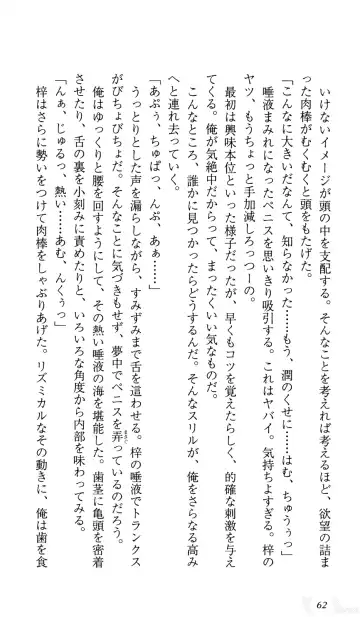 いけないイメージが頭の中を支配する。そんなことを考えれば考えるほど、欲望の詰ま
った肉棒がむくむくと頭をもたげた。
「こんなに大きいだなんて、知らなかった……もう、潤のくせに……はむ、ちゅうぅっ」
唾液まみれになったペニスを思いきり吸引する。これはヤバイ。気持ちよすぎる。梓の
ヤツ、もうちょっと手加減しろっつーの。
最初は興味本位といった様子だったが、早くもコツを覚えたらしく、的確な刺激を与え
てくる。俺が気絶中だからって、まったくいい気なものだ。
こんなところ、誰かに見つかったらどうするんだ。そんなスリルが、俺をさらなる高み
へと連れ去っていく。
「あぷぅ、ちゅぱっ、んぶ、あぁ……」
うっとりとした声を漏らしながら、すみずみまで舌を這わせる。梓の唾液でトランクス
がびちょびちょだ。そんなことに気づきもせず、夢中でペニスを弄っているのだろう。
俺はゆっくりと腰を回すようにして、その熱い唾液の海を堪能した。歯茎に亀頭を密着
させたり、舌の裏を小刻みに責めたりと、いろいろな角度から内部を味わってみる。
「んぁ、じゅるっ、熱い……あむ、んくぅっ」
梓はさらに勢いをつけて肉棒をしゃぶりあげた。リズミカルなその動きに、俺は歯を食
62